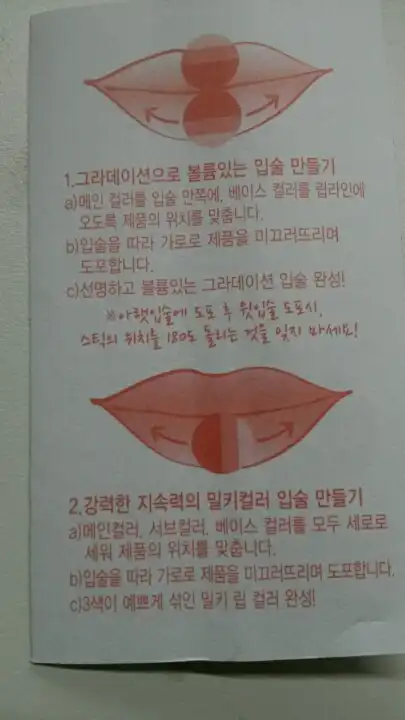 1.그라데이션으로 볼륨있는 입술 만들기
a)메인 컬러를 입술 안쪽에, 베이스 컬러를 립라인에
오도록 제품의 위치를 맞춥니다.
b)입술을 따라 가로로 제품을 미끄러뜨리며
도포합니다.
c)선명하고 볼륨있는 그라데이션 입술 완성!
※아랫입술에 도포 후 윗입술 도포시,
스틱의 위치를 180도 돌리는 것을 잊지 마세요!
2.강력한 지속력의 밀키컬러 입술 만들기
a)메인컬러, 서브컬러, 베이스 컬러를 모두 세로로
세워 제품의 위치를 맞춥니다.
b)입술을 따라 가로로 제품을 미끄러뜨리며 도포합니다.
c)3색이 예쁘게 섞인 밀키 립 컬러 완성!